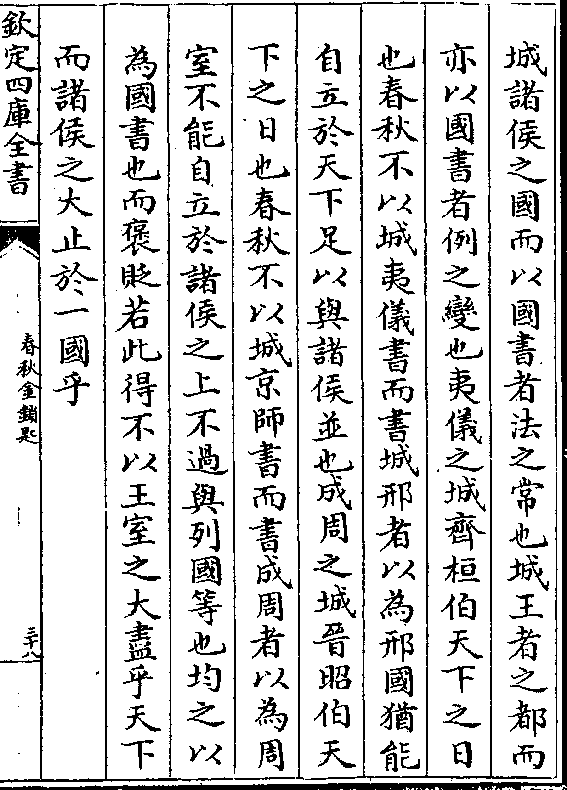 城諸侯之國而以國書者法之常也城王者之都而
亦以國書者例之變也夷儀之城齊桓伯天下之日
也春秋不以城夷儀書而書城邢者以為邢國猶能
自立於天下足以與諸侯並也成周之城晉昭伯天
下之日也春秋不以城京師書而書成周者以為周
室不能自立於諸侯之上不過與列國等也均之以
為國書也而褒貶若此得不以王室之大盡乎天下
而諸侯之大止於一國乎
欽定四庫全書
春秋金鎖匙
三十八